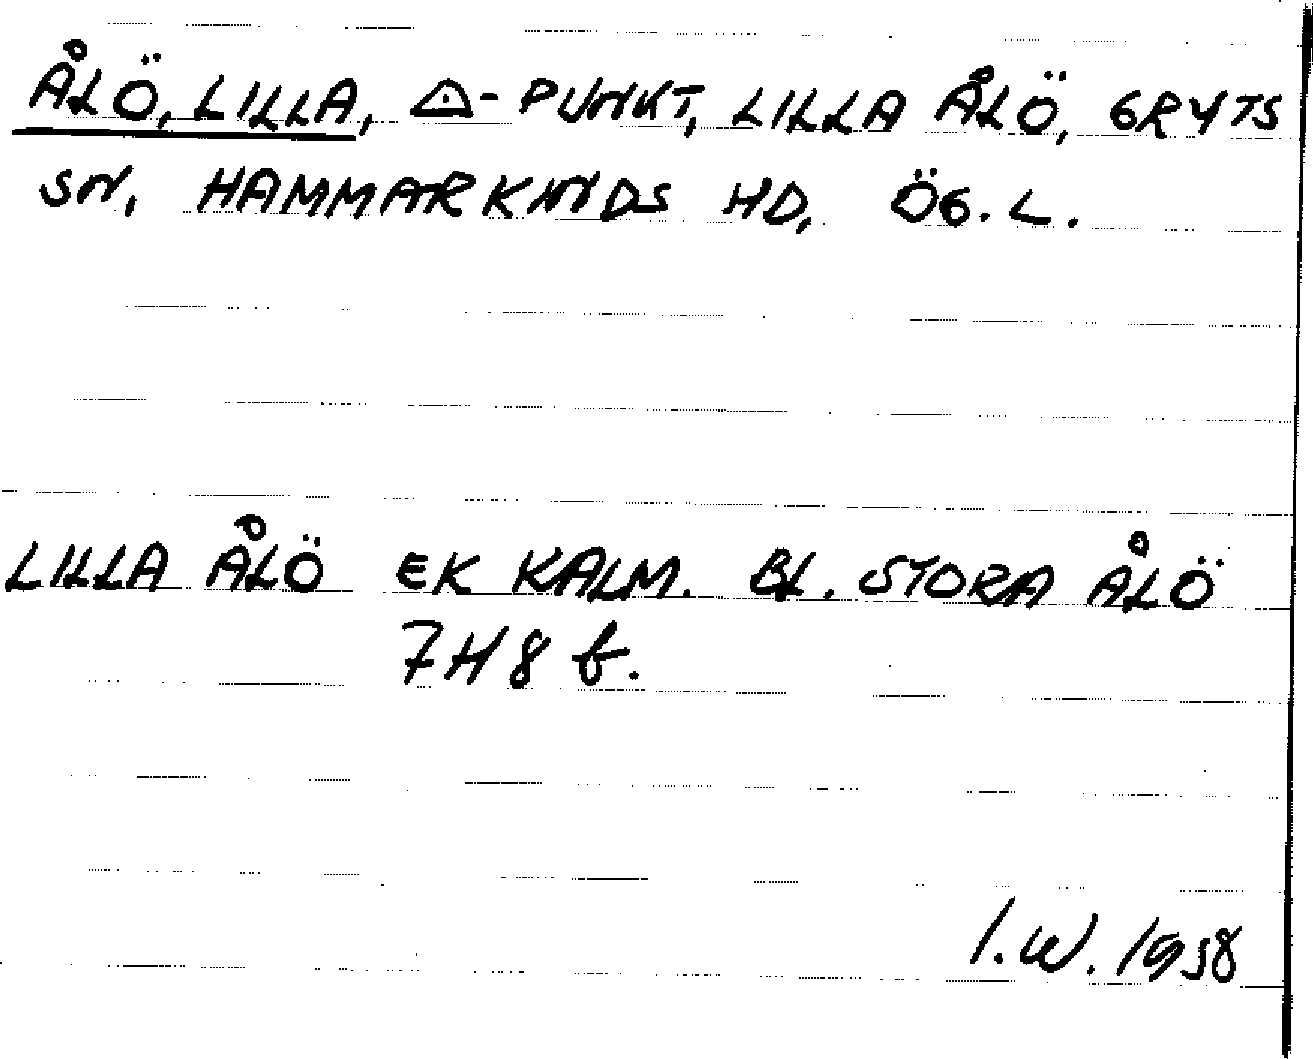 ÅLÖ, LILLA, △-PUNKT, LILLA ÅLÖ, GRYTS
SN, HAMMARKINDS HD, ÖG. L.
LILLA ÅLÖ EK KALM. BL. STORA ÅLÖ
7H8 b.
I.W. 1958